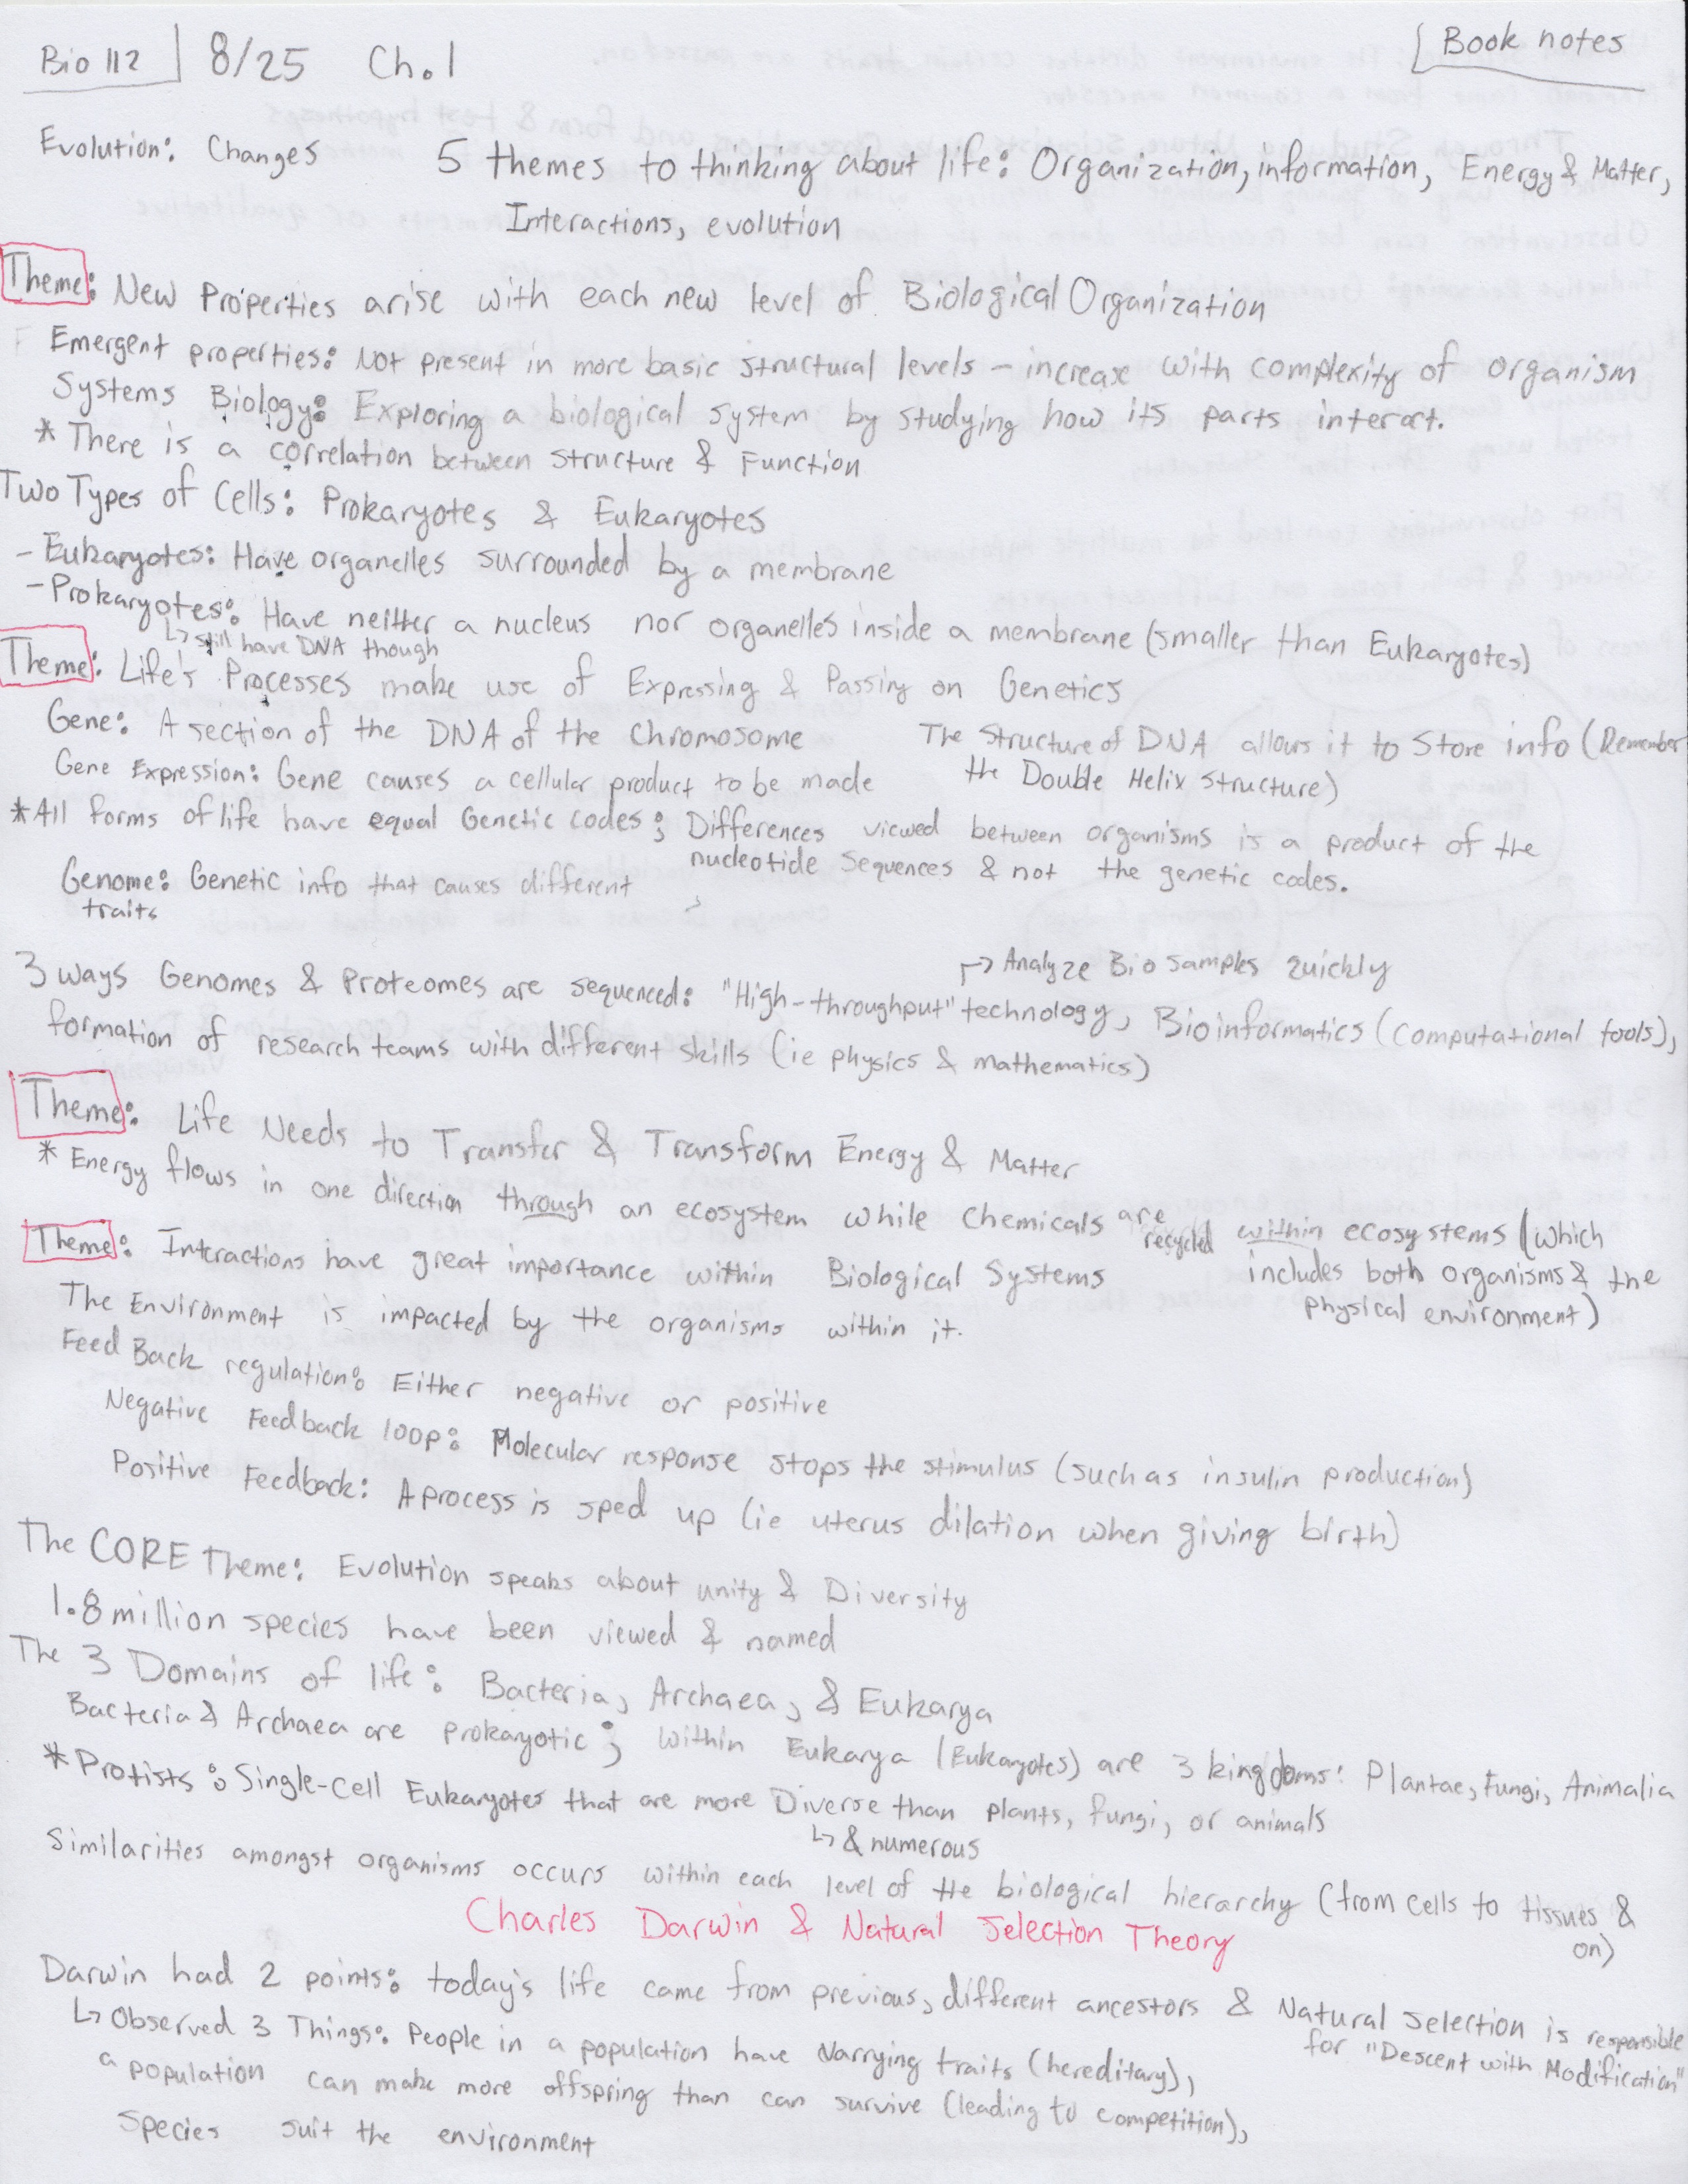 Bio 112 8/25 Ch.1 Book notes
Evolution: Changes 5 themes to thinking about life: Organization, information, Energy & Matter,
Interactions, evolution
Theme: New Properties arise with each new level of Biological Organization
Emergent properties: Not present in more basic structural levels – increase with complexity of organism
Systems Biology: Exploring a biological system by studying how its parts interact.
* There is a correlation between structure & Function
Two Types of Cells: Prokaryotes & Eukaryotes
- Eukaryotes: Have organelles surrounded by a membrane
- Prokaryotes: Have neither a nucleus nor organelles inside a membrane (smaller than Eukaryotes)
↳ still have DNA though
Theme: Life's Processes make use of Expressing & Passing on Genetics
Gene: A section of the DNA of the chromosome
The Structure of DNA allows it to Store info (Remember
the Double Helix structure)
Gene Expression: Gene causes a cellular product to be made
*All forms of life have equal Genetic codes; Differences viewed between organisms is a product of the
nucleotide sequences & not the genetic codes.
Genome: Genetic info that causes different
traits
↱ Analyze Bio samples quickly
3 ways Genomes & Proteomes are sequenced: "High-throughput" technology, Bioinformatics (computational tools),
formation of research teams with different skills (ie physics & mathematics)
Theme: Life Needs to Transfer & Transform Energy & Matter
* Energy flows in one direction through an ecosystem while chemicals are recycled within ecosystems (which
includes both organisms & the
physical environment)
Theme: Interactions have great importance within Biological Systems
The Environment is impacted by the organisms within it.
Feed Back regulation: Either negative or positive
Negative Feedback loop: Molecular response stops the stimulus (such as insulin production)
Positive Feedback: A process is sped up (ie uterus dilation when giving birth)
The CORE Theme: Evolution speaks about unity & Diversity
1.8 million species have been viewed & named
The 3 Domains of life: Bacteria, Archaea, & Eukarya
Bacteria & Archaea are prokaryotic; within Eukarya (Eukaryotes) are 3 kingdoms: Plantae, Fungi, Animalia
* Protists: Single-cell Eukaryotes that are more Diverse than plants, fungi, or animals
↳ & numerous
Similarities amongst organisms occurs within each level of the biological hierarchy (from cells to tissues &
on)
Charles Darwin & Natural Selection Theory
Darwin had 2 points: today's life came from previous, different ancestors & Natural Selection is responsible
for "Descent with Modification"
↳ Observed 3 Things: People in a population have varrying traits (hereditary),
a population can make more offspring than can survive (leading to competition),
species suit the environment